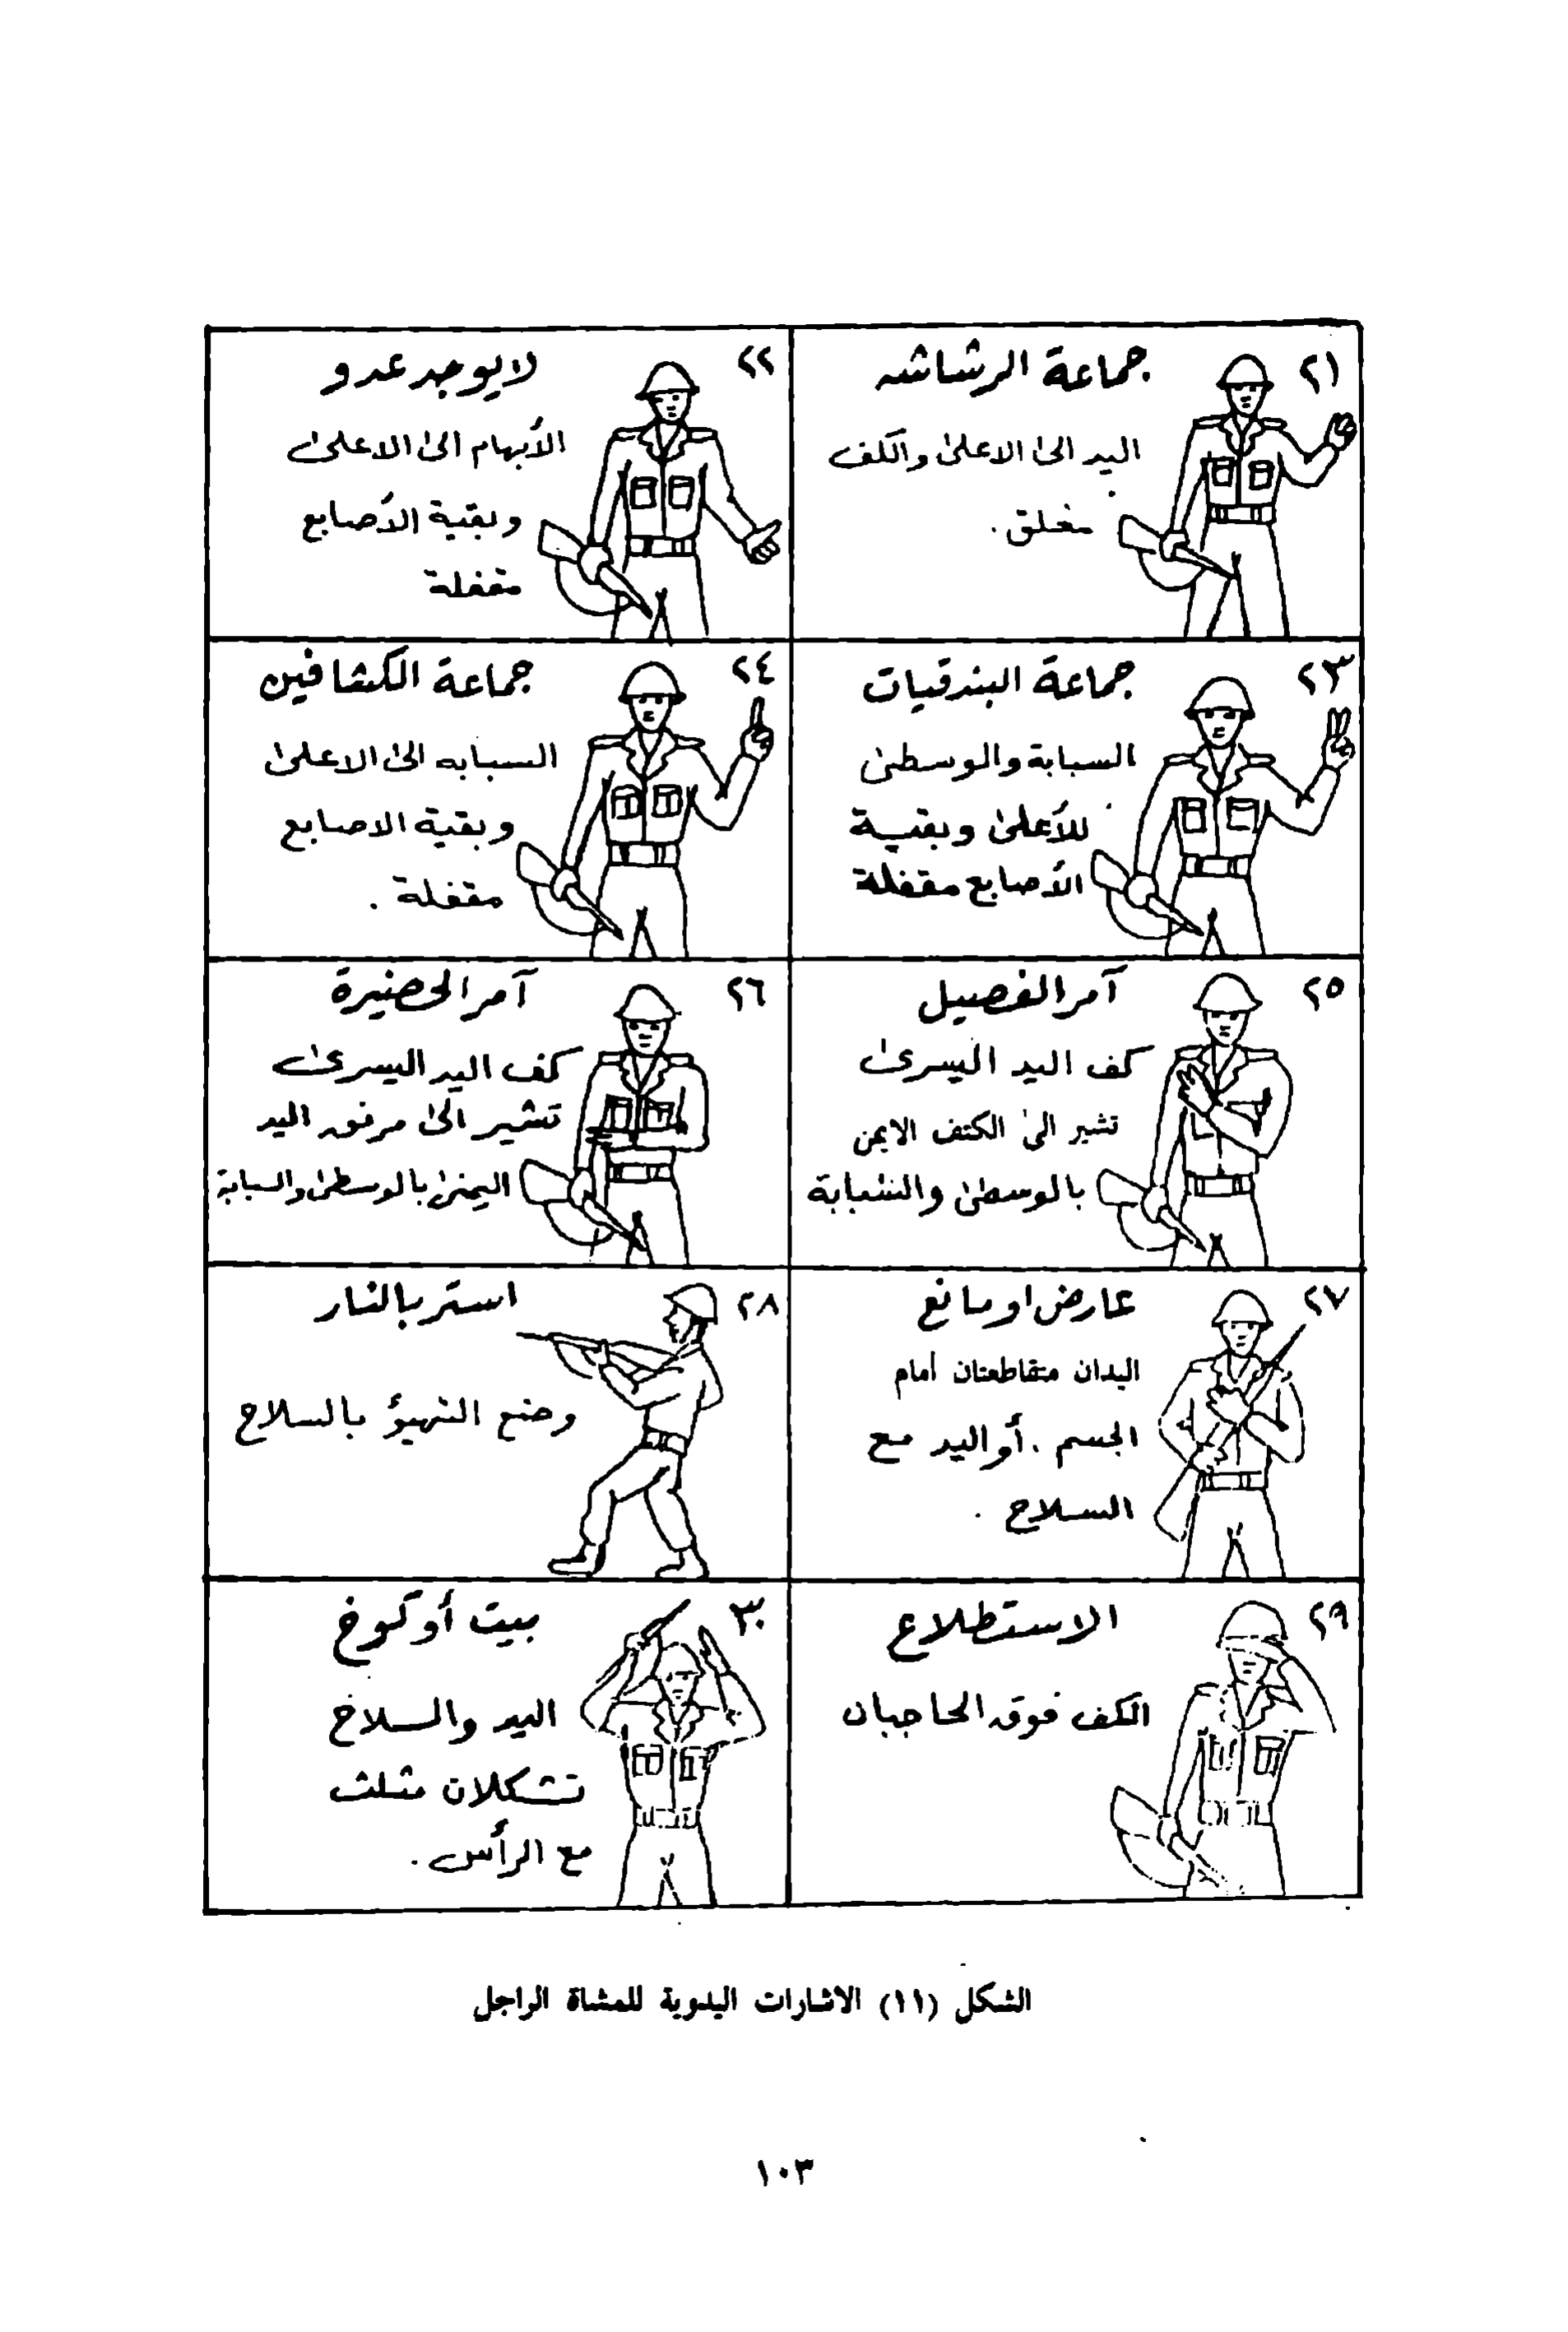 ٢١
جماعة الرشاشه
اليد الى الاعلى والكف
مغلق .
٢٢
لا يوجد عدو
الأبهام الى الاعلى
وبقية الأصابع
مقفلة
٢٣
جماعة البندقيات
السبابة والوسطى
للأعلى وبقية
الأصابع مقفلة
٢٤
جماعة الكشافين
السبابه الى الاعلى
وبقية الاصابع
مقفلة .
٢٥
آمر الفصيل
كف اليد اليسرى
تشير الى الكتف الايمن
بالوسطى والسبابة
٢٦
آمر الحضيرة
كف اليد اليسرى
تشير الى مرفق اليد
اليمنى بالوسطى والسبابة
٢٧
عارض او مانع
اليدان متقاطعتان أمام
الجسم . أو اليد مع
السلاح .
٢٨
استر بالنار
وضع التهيؤ بالسلاح
٢٩
الاستطلاع
الكف فوق الحاجبان
٣٠
بيت أو كوخ
اليد والسلاح
تشكلان مثلث
مع الرأس .
الشكل (١١) الاشارات اليدوية للمشاة الراجل
١٠٣